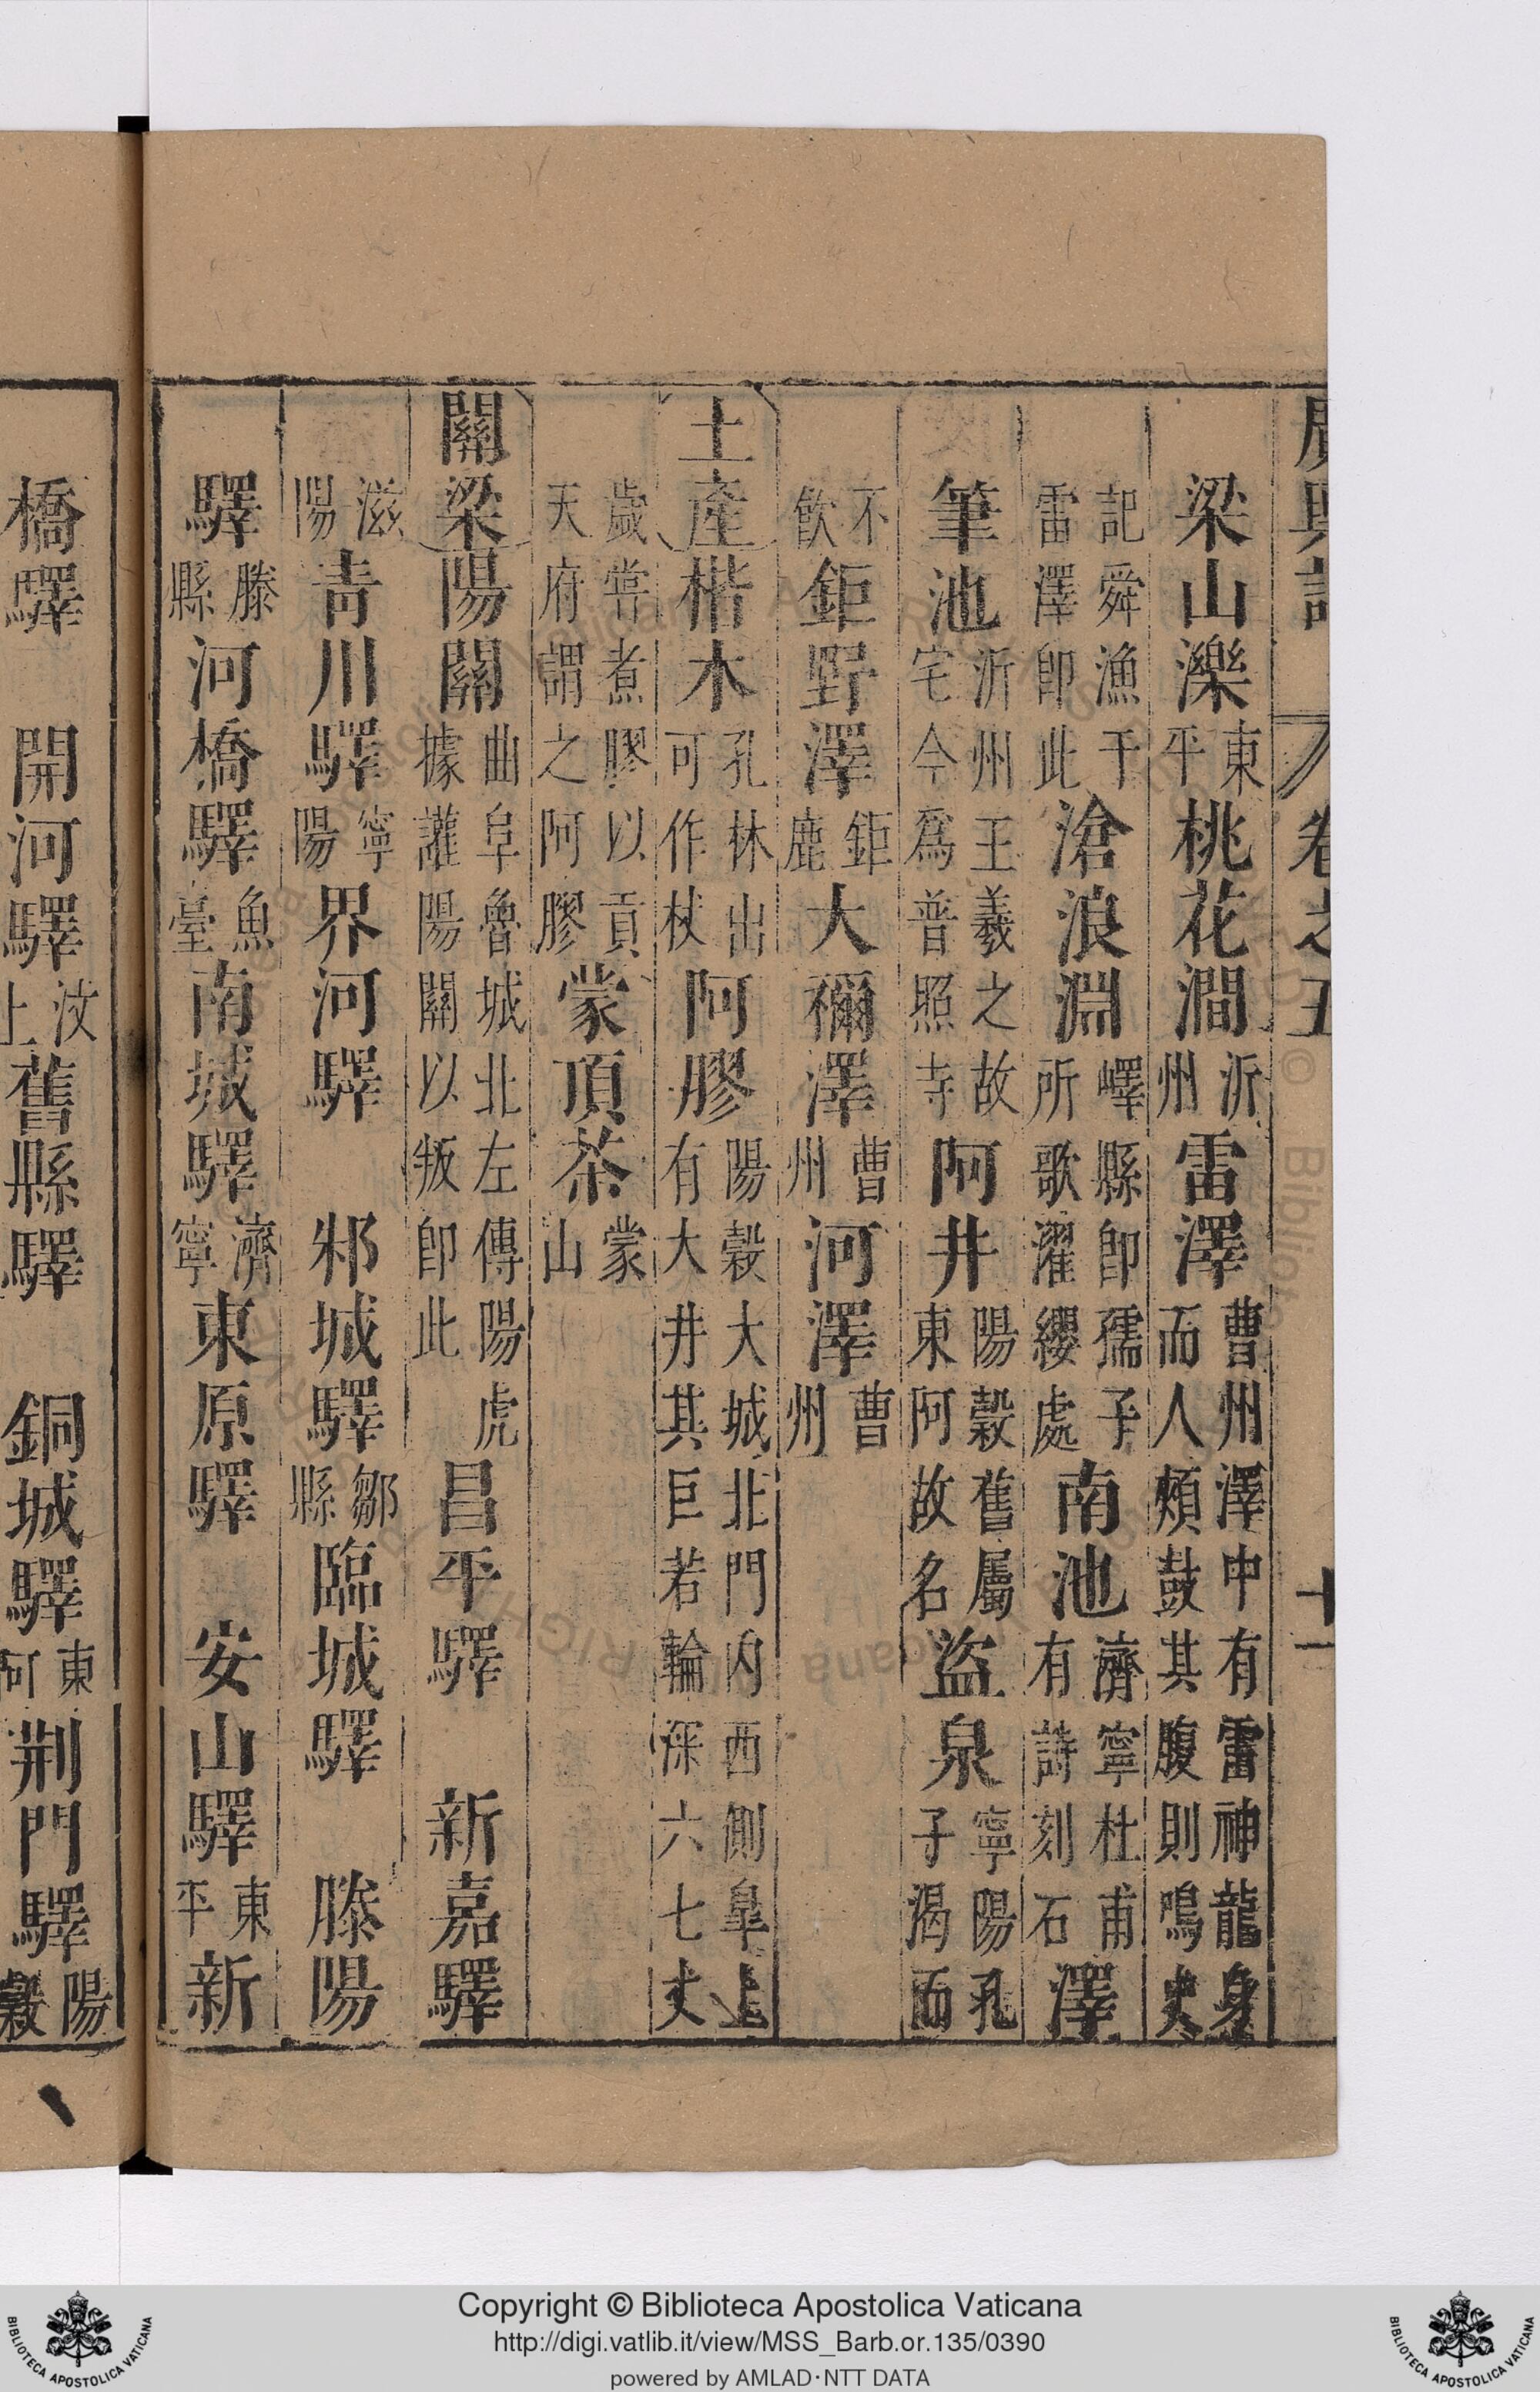 廣輿記 卷之五 十一
梁山濼東平桃花澗沂州雷澤曹州澤中有雷神龍身而人頰鼓其腹則鳴史
記舜漁于雷澤卽此滄浪淵嶧縣卽孺子所歌濯纓處南池濟寧杜甫有詩刻石澤
筆池沂州王羲之故宅今爲普照寺阿井陽穀舊屬東阿故名盜泉寧陽孔子渴而
不飲鉅野澤鉅鹿大禰澤曹州河澤曹州
土產楷木孔林出可作杖阿膠陽穀大城北門內西側皐上有大井其巨若輪深六七丈
歲嘗煮膠以貢天府謂之阿膠蒙頂茶蒙山
關梁陽關曲阜魯城北左傳陽虎據讙陽關以叛卽此昌平驛 新嘉驛
滋陽青川驛寧陽界河驛 邾城驛鄒縣臨城驛 滕陽
驛滕縣河橋驛魚臺南城驛濟寧東原驛 安山驛東平新
橋驛 開河驛汶上舊縣驛 銅城驛東阿荆門驛陽穀
Copyright © Biblioteca Apostolica Vaticana
http://digi.vatlib.it/view/MSS_Barb.or.135/0390
powered by AMLAD·NTT DATA
BIBLIOTECA APOSTOLICA VATICANA
BIBLIOTECA APOSTOLICA VATICANA